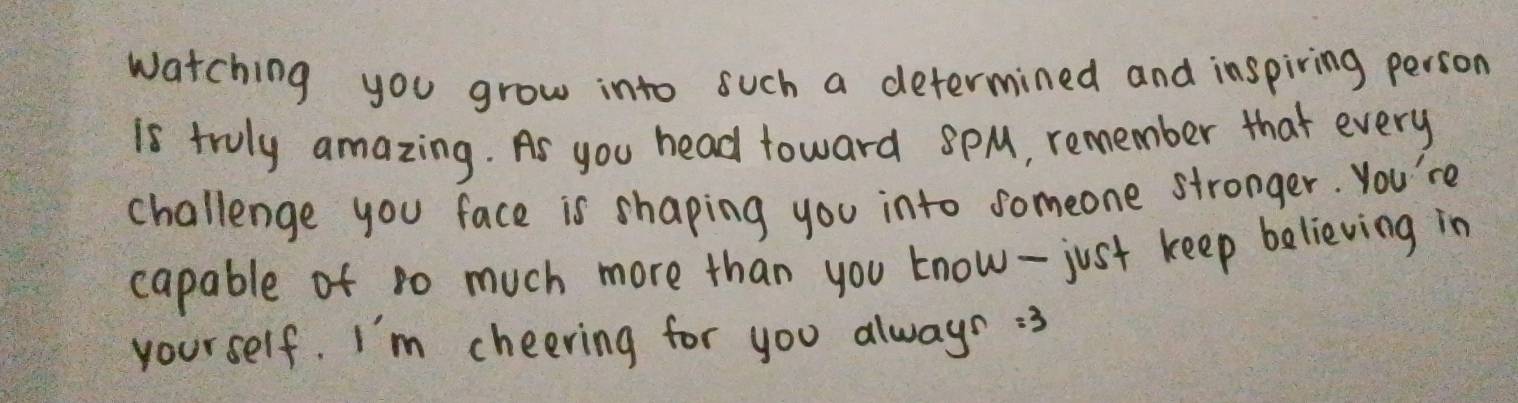 Watching you grow into such a determined and inspiring person
is truly amazing. As you head toward SPM, remember that every
challenge you face is shaping you into someone stronger. You're
capable of so much more than you know - just keep believing in
yourself. I'm cheering for you always :3